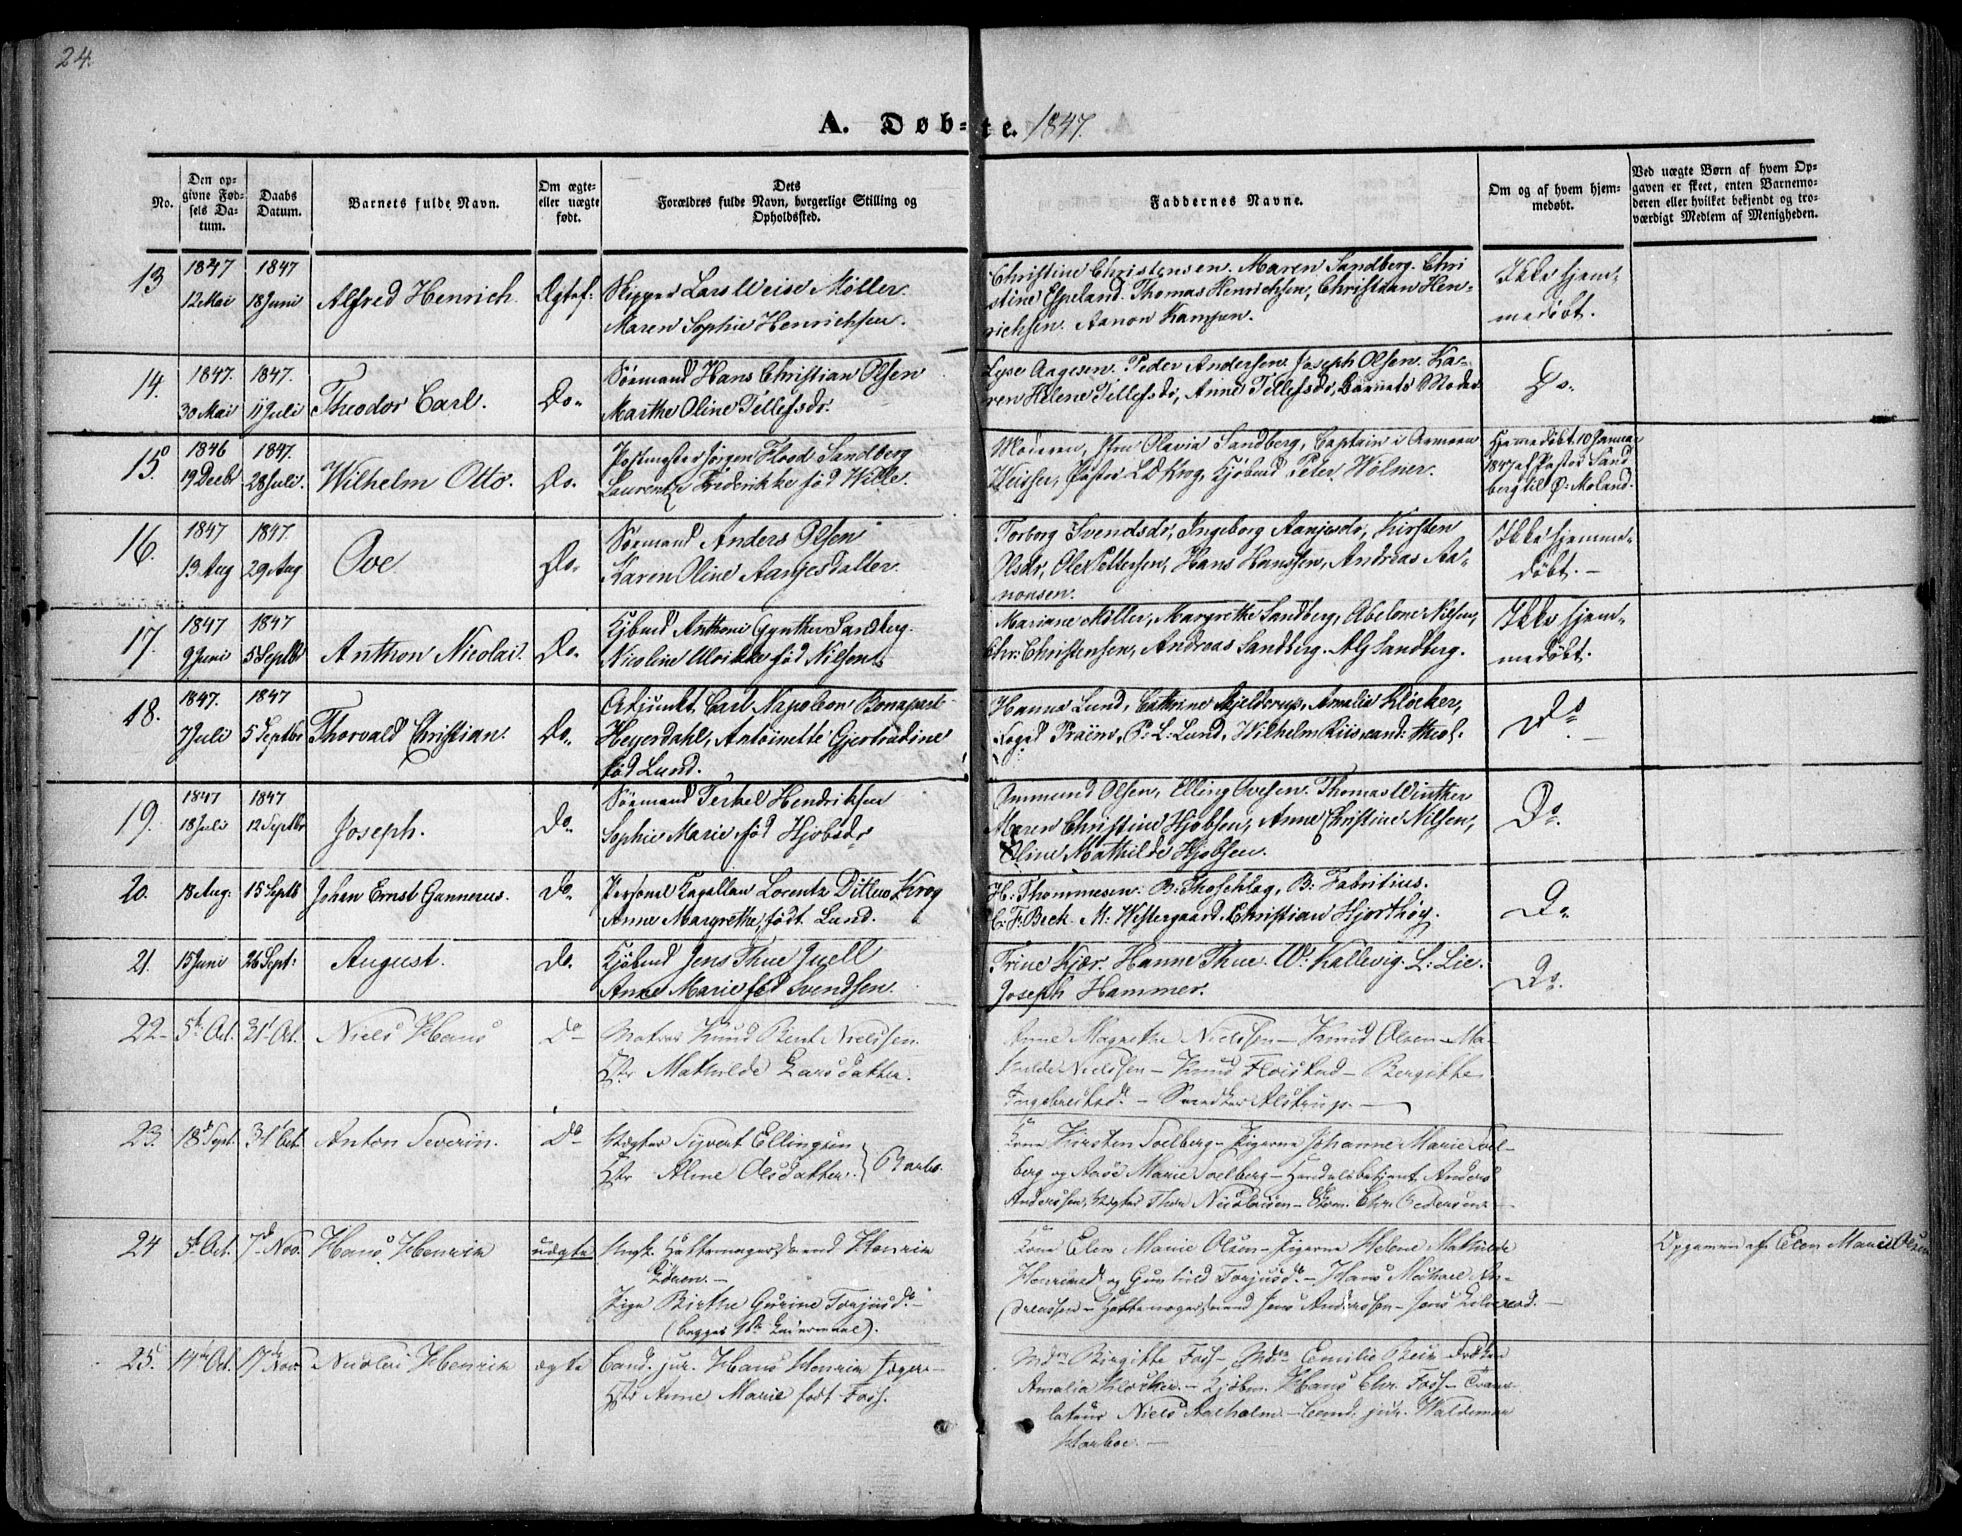 24.
A. Døb=te. 1847.
No.
Den op=
givne Fød=
sels Da=
tum.
Daabs
Datum.
Barnets fulde Navn.
Om ægte=
eller uægte
født.
Dets
Forældres fulde Navn, borgerlige Stilling og
Opholdssted.
Faddernes Navne.
Om og af hvem hjem=
medøbt.
Ved uægte Børn af hvem Op=
gaven er skeet, enten Barnemo=
deren eller hvilket bekjendt og tro=
værdigt Medlem af Menigheden.
13
1847
12 Mai
1847
18 Juni
Alfred Henrich.
Ægtef:
Skipper Lars Weise Møller.
Maren Sophie Henrichsen.
Christine Christensen. Maren Sandberg. Chri
stine Espeland. Thomas Henrichsen, Christian Hen=
richsen. Aanon Kampen.
Ikke hjem=
medøbt.
14.
1847.
30 Mai
1847.
11 Juli
Theodor Carl.
Do.
Sømand Hans Christian Olsen
Marthe Oline Tellefsdr.
Lyse Aagesen. Peder Andersen. Joseph Olsen. Ka=
ren Helene Tellefsdr, Anne Tellefsdr, Barnets Moder
Do.
15
1846
19 Decbr
1847.
28 Juli.
Wilhelm Otto.
Do.
Postmester Jørgen Flood Sandberg
Laurentze Frederikke fød Wille.
Olavia Sandberg, Captain i Armeen
Weisser, Pastor L D Krog, Kjøbmd Peter Wolner.
Hjemmedøbt 10 Januar
1847 af Pastor Sand
berg til Ø: Moland.
16.
1847
19 Aug
1847.
29 Aug
Ove
Do.
Sømand Anders Olsen
Karen Oline Aanjesdatter
Torborg Svendsdr, Ingeborg Aanjesdr, Kirsten
Olsdr, Ole Pettersen, Hans Hansen, Andreas Aa=
nonsen.
Ikke hjemme=
døbt.
17.
1847
9 Juni
1847
5 Septbr
Anthon Nicolai.
Do.
Kjbmd Anthoni Gynther Sandberg.
Nicoline Ulrikke fød Nilsen.
Mariane Møller, Margrethe Sandberg, Abelone Nilsen,
Chr: Christensen, Andreas Sandberg. A G Sandberg.
Ikke hjem=
medøbt.
18.
1847.
7 Juli
1847
5 Septbr
Thorvald Christian.
Do.
Adjunkt Carl Napoleon Bonaparte
Heyerdahl, Antoinette Gjertrudine
fød Lund.
Hanna Lund, Cathrine Kjelderup, Amalie Klöcker,
Foged Præm, P: L: Lund, Wilhelm Riis, cand: theol.
Do
19.
1847
18 Juli
1847
12 Septbr
Joseph.
Do.
Sømand Terkel Hendriksen
Sophie Marie fød Hjobsdr
Ommund Olsen, Elling Ovesen. Thomas Winther
Maren Christine Hjobsen, Anne Christine Nilsen,
Oline Mathilde Hjobsen.
Do.
20.
18 Aug.
15 Septb
Johan Ernst Gunnerus.
Do.
Personel Capellan Lorentz Ditlev Krog
Anne Margrethe, født Lund.
H: Thommesen. B: Thoschlag, B: Fabritius.
C: F: Beck. M: Westergaard. Christian Hjorthøy.
Do
21.
15 Juni
26 Sept:
August.
Do.
Kjøbmd Jens Thue Juell
Anne Marie fød Svendsen.
Trine Kjær. Hanne Thue. W: Kallevig. L: Lie.
Joseph Hammer.
Do.
22
5te Oct.
31 Oct.
Niels Hans
Do
Matros Knud Bent Nielssen.
Hstr Mathilde Larsdatter.
Anne Magrethe Nielssen – Knud Olsen – Ma=
thilde Nielssen – Knud Floistad – Bergitte
Ingebretsd. – Snedker Alstrup. –
23.
18 Sept.
31 Oct.
Anton Severin.
Do
Vægter Sivert Ellingsen
Hstr Aline Olsdatter. } Barbo.
Kone Kirsten Solberg – Pigerne Johanne Marie Sol=
berg og Aase Marie Solberg – Handelsbetjent Anders
Anderssen, Vægter Thor Nicolaisen – Chr. Pedersen –
24
Oct.
7d Nov.
Hans Henrik
uægte
Ungk. Hattemagersvend Henrik
Pige Birthe Gurine Torjusd. –
(begges 1ste Leiermaal).
Kone Elen Marie Olsen – Pigerne Helene Mathilde
og Gunhild Torjusd. – Hans Michael An=
dreassen – Hattemagersvend Jens Anderssen – Jens
Opgaven af Elen Marie Olsen
25.
14de Oct.
17de Nov.
Nicolai Henrik
ægte
Cand. jur. Hans Henrik
Hstr Anne Marie født Foss.
Mdm Birgitte Foss – Mdm Emilie Frøken
Amalia Klöcker – Kjøbm. Hans Chr. Foss – Trans=
lateur Niels Aalholm – Cand. jur. Waldemar
Harboe. –